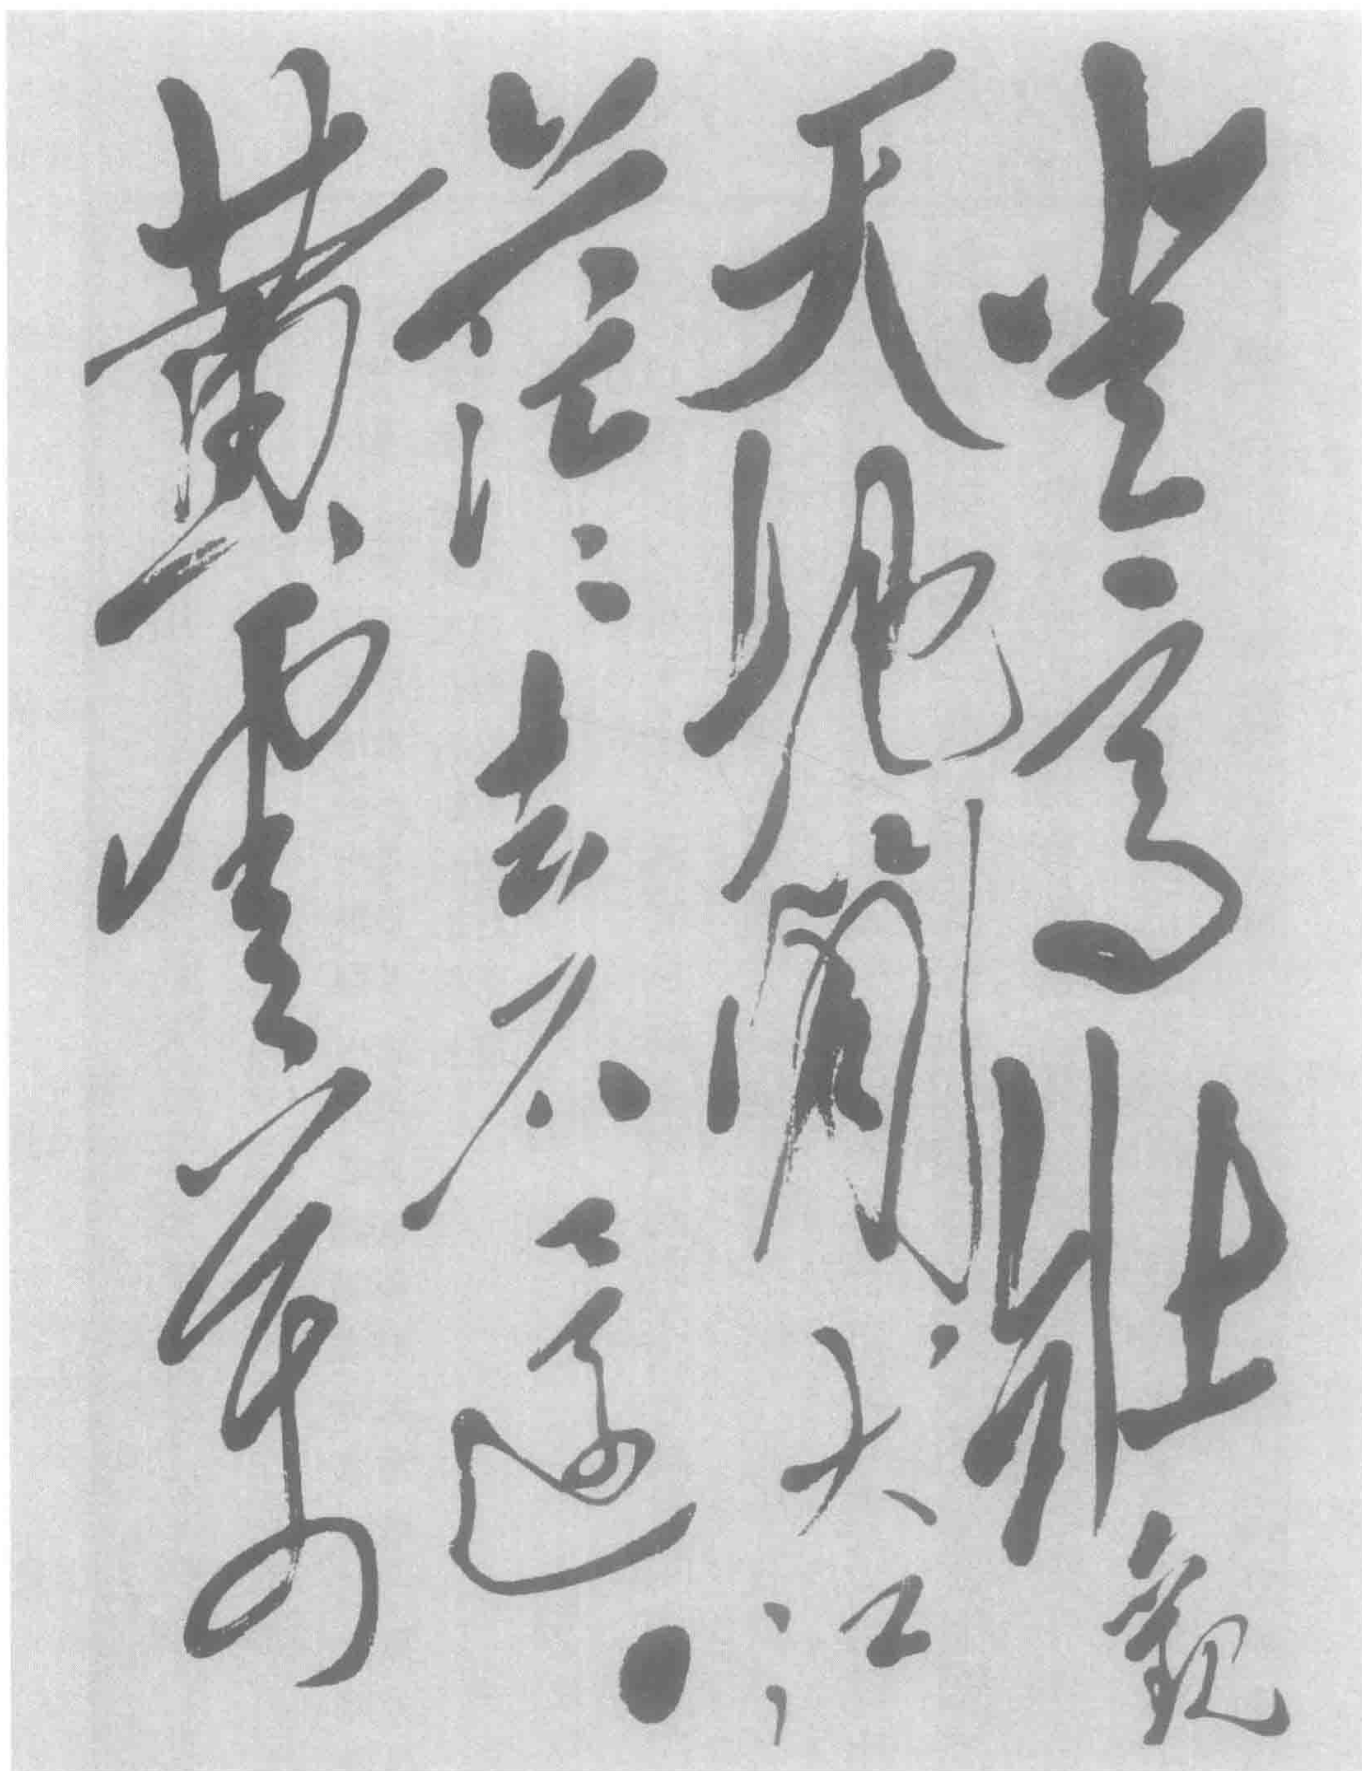 登高壯觀
天地間大江
茫々去不還
黃雲萬